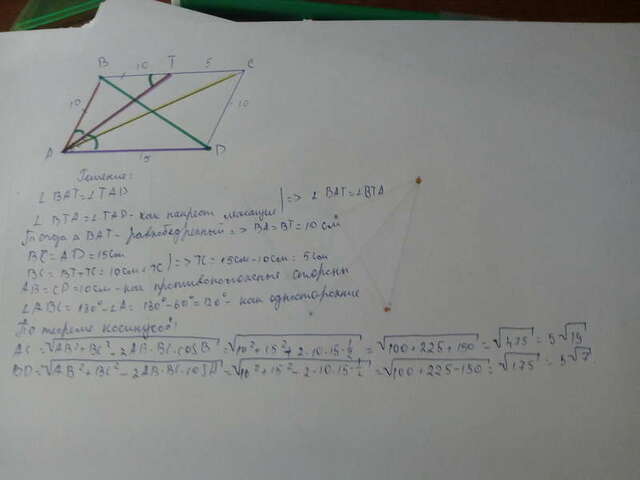 B 10 T 5 C
10 10
A 15 D
Решение:
∠BAT=∠TAD
∠BTA=∠TAD - как накрест лежащие | => ∠BAT=∠BTA
Тогда △ BAT - равнобедренный => BA=BT=10 см
BC=AD=15см
BC=BT+TC=10см+TC | => TC=15см-10см=5см
AB=CD=10см - как противоположные стороны
∠ABC=180°-∠A=180°-60°=120° - как односторонние
По теореме косинусов:
AC=√AB²+BC²-2AB·BC·cosB=√10²+15²+2·10·15·½=√100+225+150=√475=5√19
BD=√AB²+BC²-2AB·BC·cosA=√10²+15²-2·10·15·½=√100+225-150=√175=5√7.